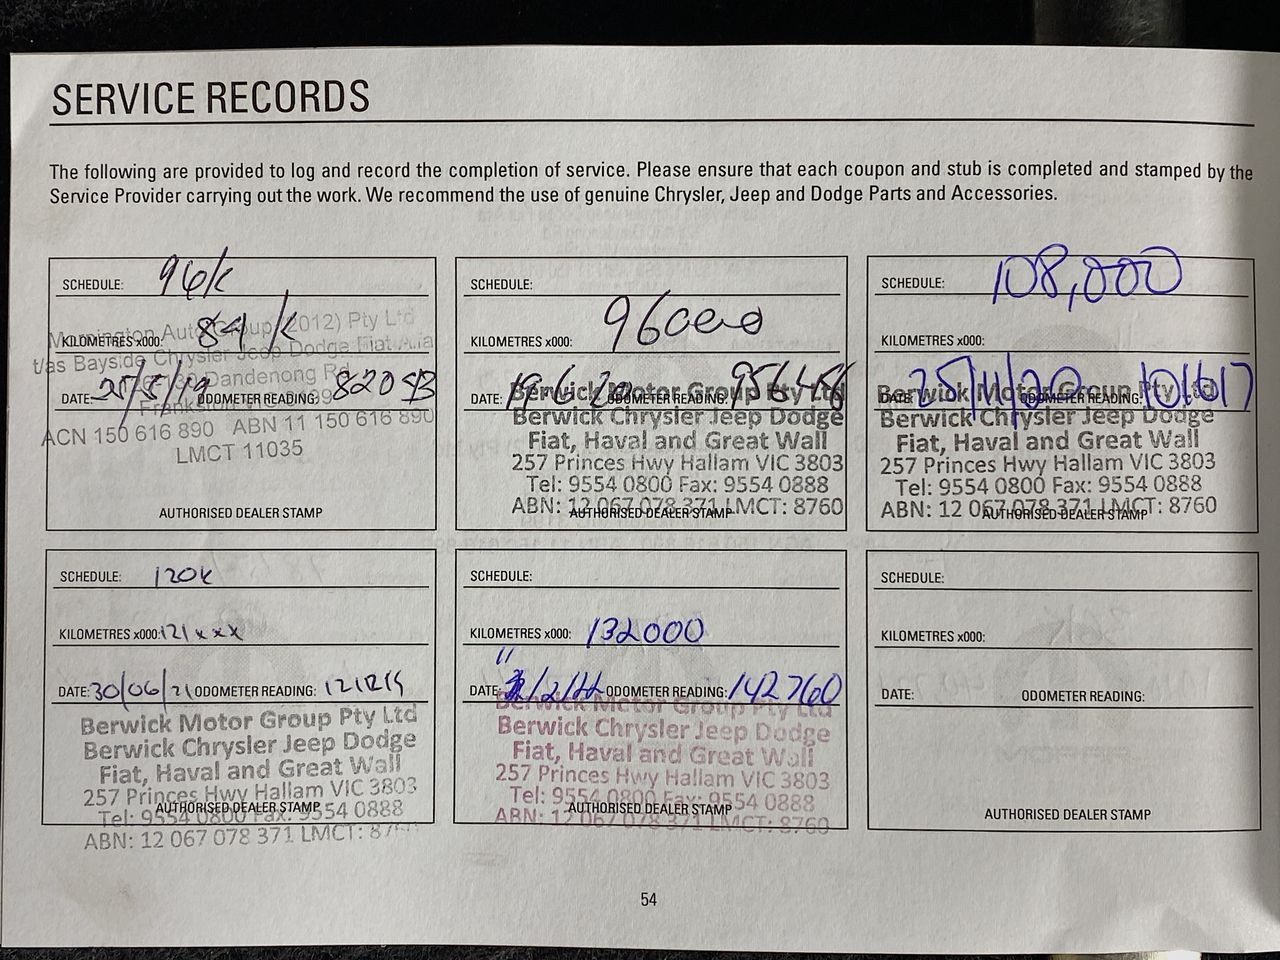 SERVICE RECORDS
The following are provided to log and record the completion of service. Please ensure that each coupon and stub is completed and stamped by the
Service Provider carrying out the work. We recommend the use of genuine Chrysler, Jeep and Dodge Parts and Accessories.
SCHEDULE: 96/k
KILOMETRES x000: 84/k
Mornington Auto Group (2012) Pty Ltd
t/as Bayside Chrysler Jeep Dodge Fiat
Dandenong Rd
DATE: 25/5/19 ODOMETER READING: 82093
Frankston
ACN 150 616 890 ABN 11 150 616 890
LMCT 11035
AUTHORISED DEALER STAMP
SCHEDULE:
KILOMETRES x000: 96000
DATE: 19 6 20 ODOMETER READING:
Berwick Motor Group Pty Ltd
Berwick Chrysler Jeep Dodge
Fiat, Haval and Great Wall
257 Princes Hwy Hallam VIC 3803
Tel: 9554 0800 Fax: 9554 0888
ABN: 12 067 078 371 LMCT: 8760
AUTHORISED DEALER STAMP
SCHEDULE: 108,000
KILOMETRES x000:
DATE: 25/11/20 ODOMETER READING: 101617
Berwick Motor Group Pty Ltd
Berwick Chrysler Jeep Dodge
Fiat, Haval and Great Wall
257 Princes Hwy Hallam VIC 3803
Tel: 9554 0800 Fax: 9554 0888
ABN: 12 067 078 371 LMCT: 8760
AUTHORISED DEALER STAMP
SCHEDULE: 120k
KILOMETRES x000: 121xxx
DATE: 30/06/21 ODOMETER READING:
Berwick Motor Group Pty Ltd
Berwick Chrysler Jeep Dodge
Fiat, Haval and Great Wall
257 Princes Hwy Hallam VIC 3803
Tel: 9554 0800 Fax: 9554 0888
AUTHORISED DEALER STAMP
ABN: 12 067 078 371 LMCT:
SCHEDULE:
KILOMETRES x000: 132000
11
DATE: /2/22 ODOMETER READING: 142760
Berwick Motor Group Pty Ltd
Berwick Chrysler Jeep Dodge
Fiat, Haval and Great Wall
257 Princes Hwy Hallam VIC 3803
Tel: 9554 0800 Fax: 9554 0888
AUTHORISED DEALER STAMP
ABN: 12 067 078 371 LMCT: 8760
SCHEDULE:
KILOMETRES x000:
DATE: ODOMETER READING:
AUTHORISED DEALER STAMP
54